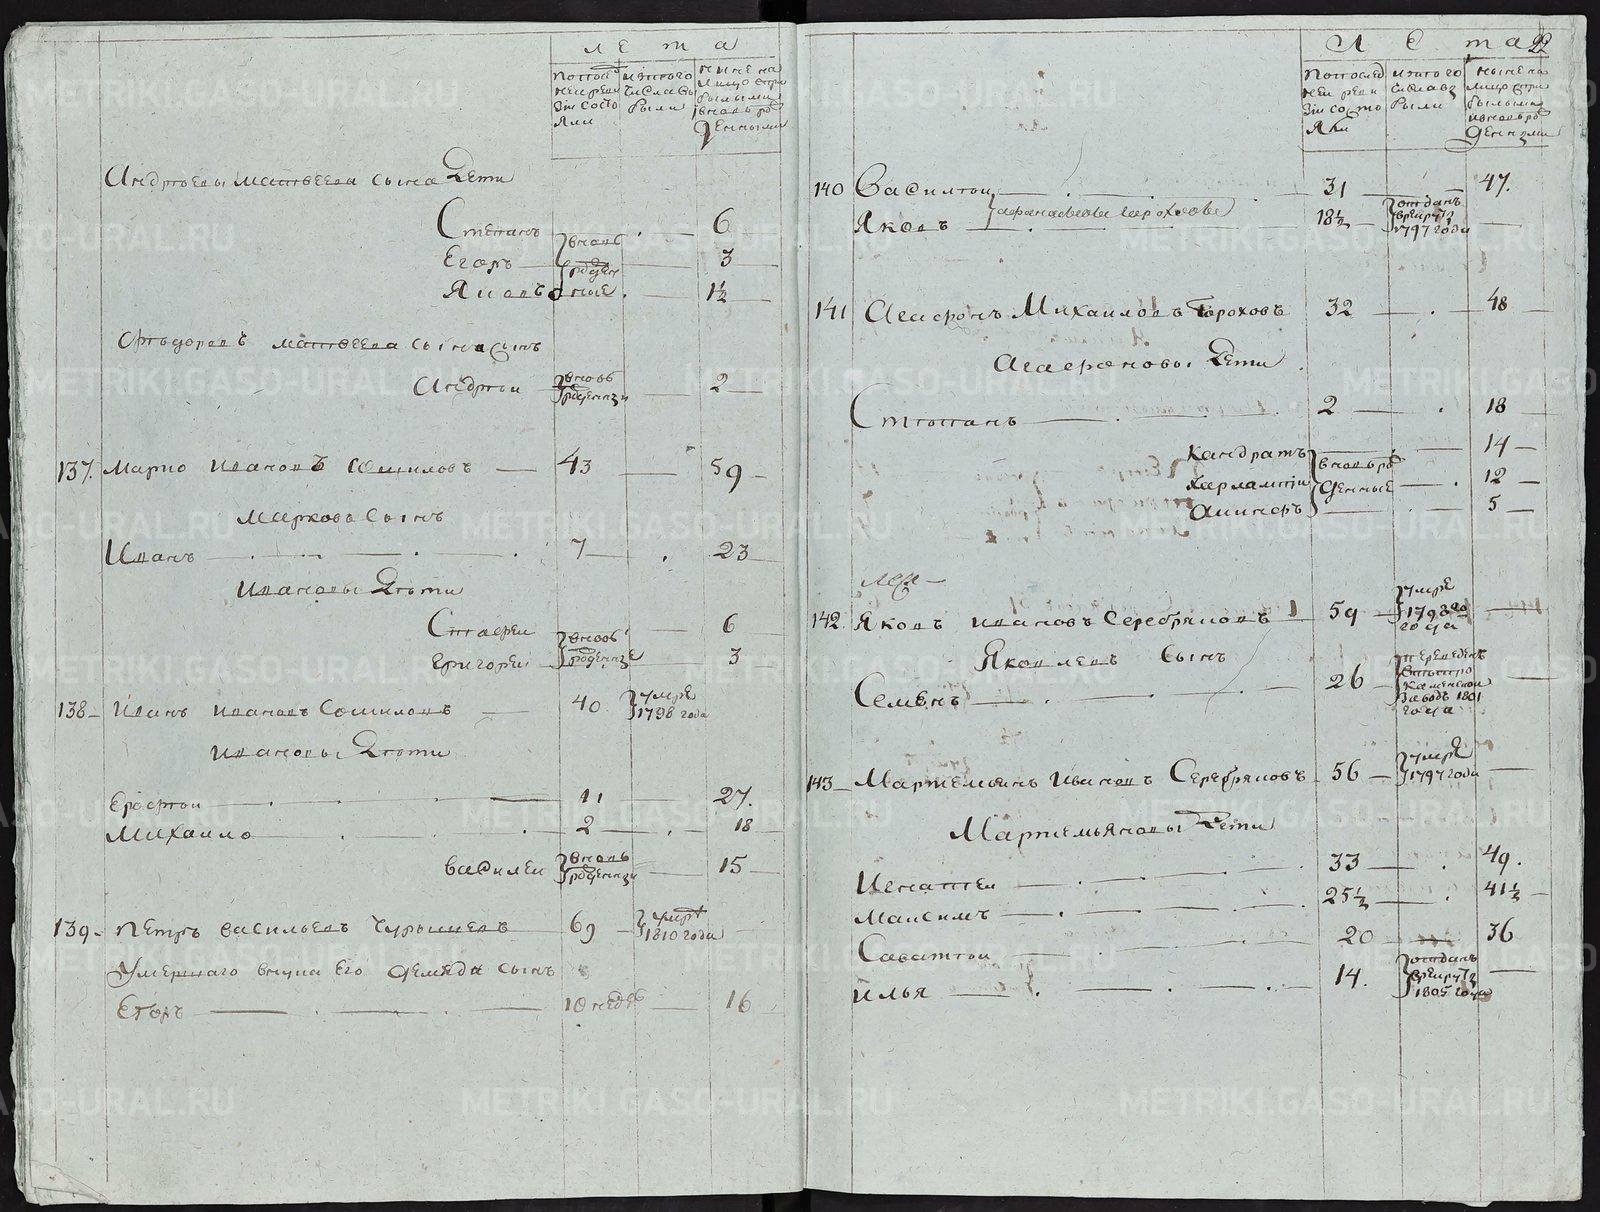 лета
по последней ревизии состояли
из того числа выбыли
ныне на лицо с прибылыми и вновь рожденными
Андреевы Матвеева сына Дети
Степанъ 6
Егоръ 3
Яковъ 1½
вновь рожденные
Фъодоровъ Матвеева сына сынъ
Андреи вновь рожденныи 2
137. Марко Ивановъ 43 59
Марковъ сынъ
Иванъ 7 23
Ивановы Дъти
Стаѳеи 6
Григореи 3
вновь рожденные
138 Иванъ Ивановъ 40 умре 1798 года
Ивановы Дъти
Ерофеи 11 27.
Михаило 2 18
Василеи вновь рожденныи 15
139 Петръ Васильевъ 69 умре 1810 года
Умершаго внука Его Демида сынъ
Егоръ 10 недель 16
Лета 22
по последней ревизии состояли
из того числа выбыли
ныне на лицо с прибылыми и вновь рожденными
140 Василеи 31 47.
Яковъ 18½ отданъ в рекруты 1797 года
Афанасьевы Гороховы
141 Агафонъ Михаиловъ Гороховъ 32 48
Агафоновы Дети
Степанъ 2 18
Кандратъ 14
Харлампіи 12
5
вновь рожденные
142. Яковъ Ивановъ Серебряковъ 59 умре 1798 го года
Яковлевъ Сынъ
Семенъ 26 переведенъ Каменскои Заводъ 1801 года
143 Мартемьянъ Ивановъ Серебряковъ 56 умре 1797 года
Мартемьяновы Дети
Игнатеи 33 49.
Максимъ 25½ 41½
Саватеи 20 36
Илья 14. отданъ в рекруты 1805 года
METRIKI.GASO-URAL.RU